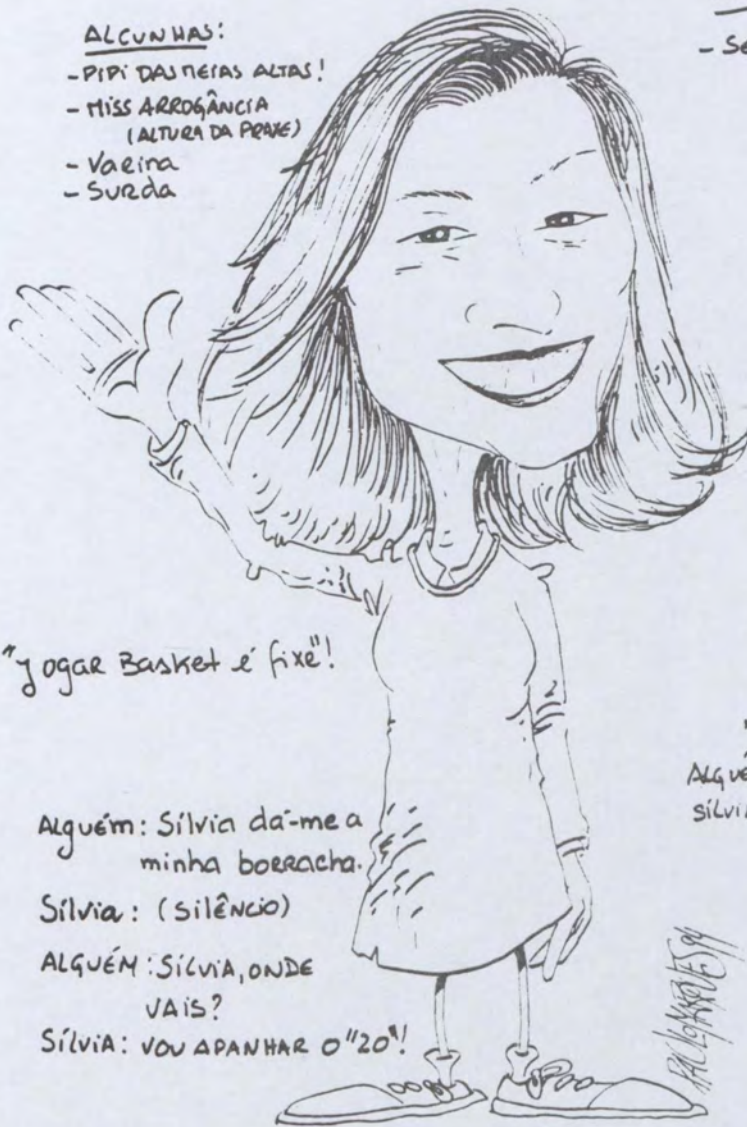 ALCUNHAS:
- PIPI DAS MEIAS ALTAS!
- MISS ARROGÂNCIA
(ALTURA DA PRAXE)
- Varina
- Surda
- Se
"Jogar Basket é fixe"!
Alguém: Sílvia dá-me a
minha borracha.
Sílvia: (silêncio)
ALGUÉM: SÍLVIA, ONDE
VAIS?
SÍLVIA: VOU APANHAR O "20"!
ALGUÉ
SÍLVIA